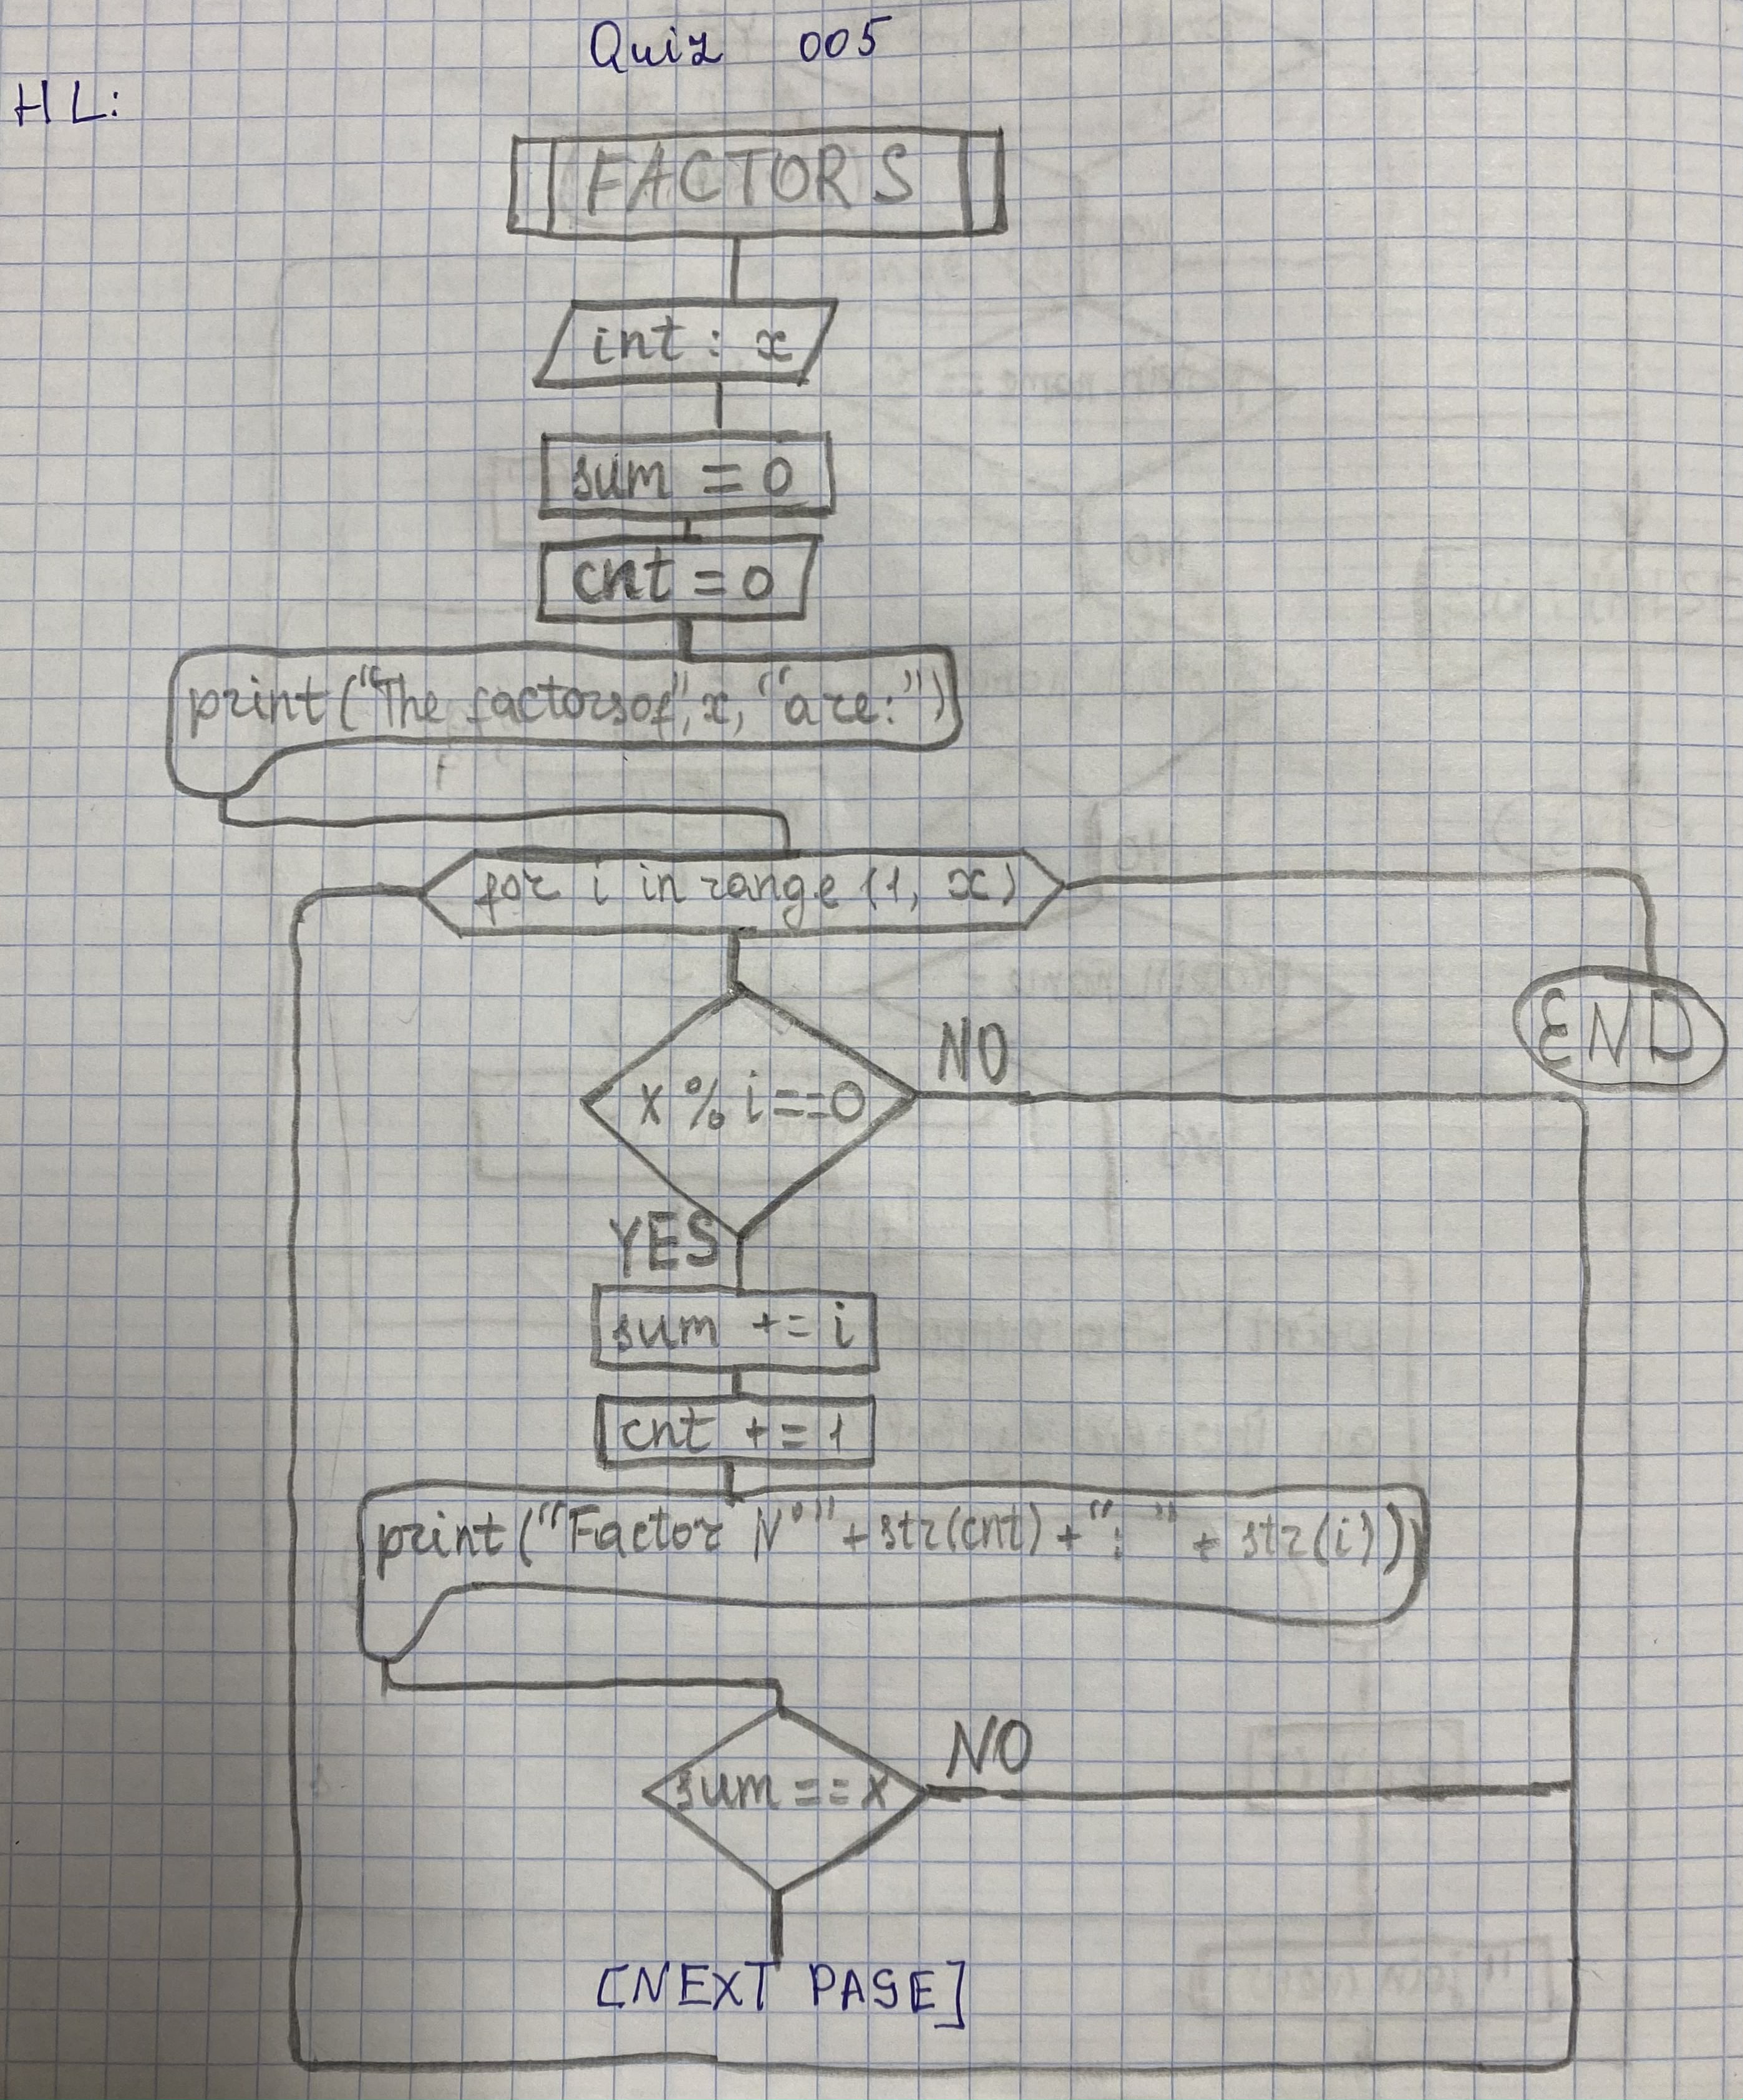 Quiz 005
HL:
FACTORS
int : x
sum = 0
cnt = 0
print("The factorsof", x, "are:")
for i in range (1, x)
END
NO
x % i==0
YES
sum += i
cnt += 1
print("Factor N°"+str(cnt)+": "+ str(i))
NO
sum == x
[NEXT PAGE]